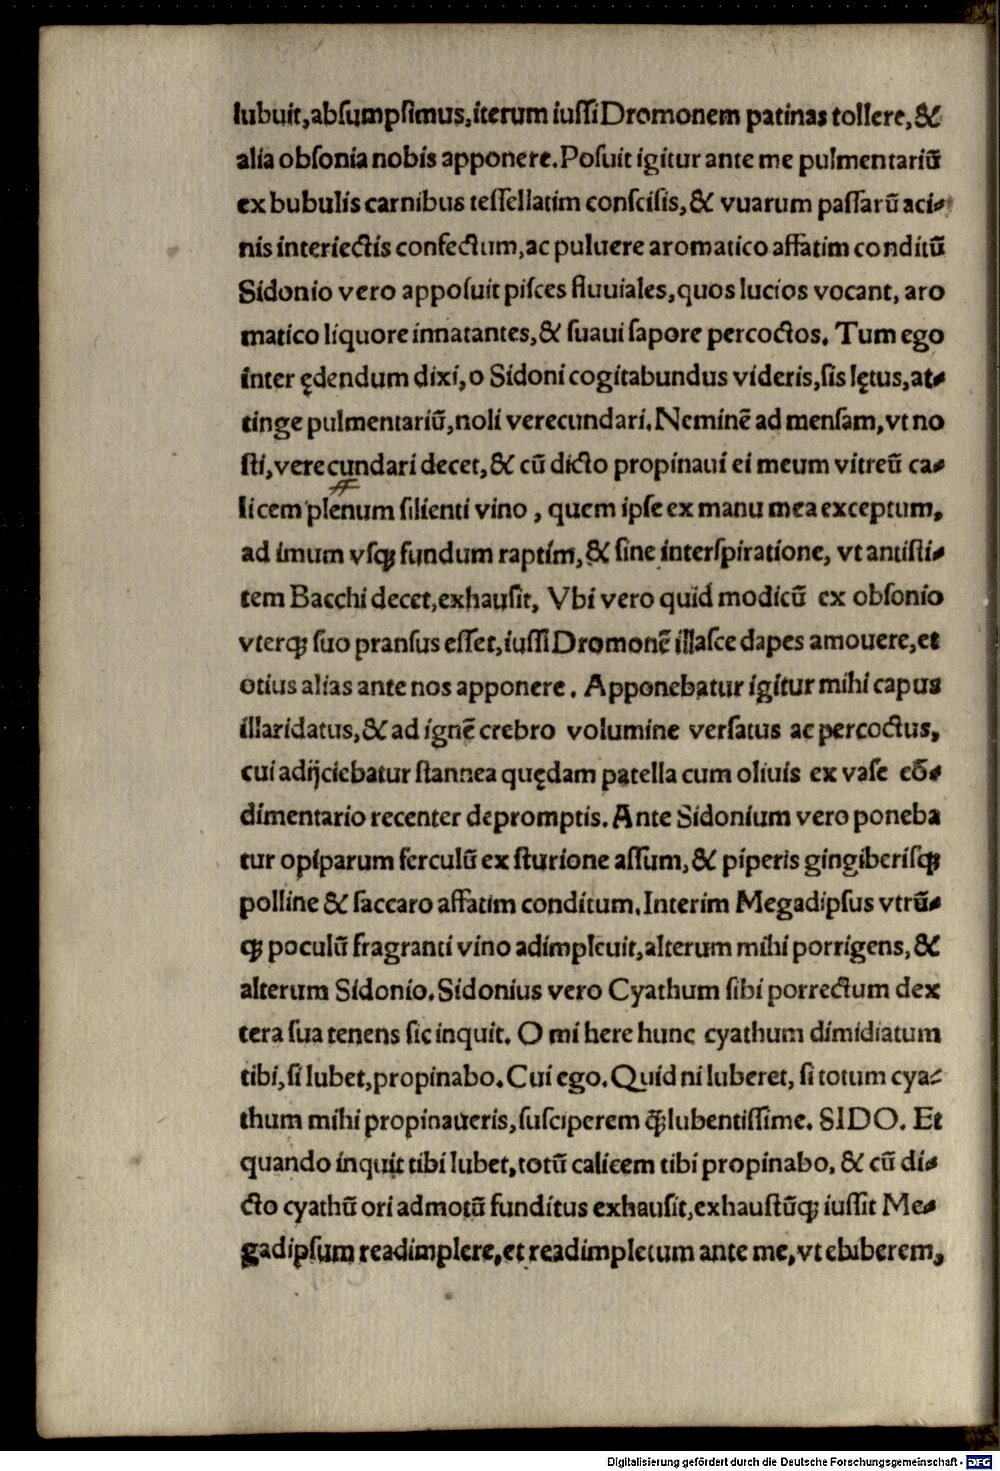 lubuit,abſumpſimus,iterum iuſſi Dromonem patinas tollere,&
alia obſonia nobis apponere.Poſuit igitur ante me pulmentariū
ex bubulis carnibus teſſellatim conſciſis,& vuarum paſſarū aci-
nis interiectis confectum,ac puluere aromatico affatim conditū
Sidonio vero appoſuit piſces fluuiales,quos lucios vocant, aro
matico liquore innatantes,& ſuaui ſapore percoctos. Tum ego
inter ędendum dixi,o Sidoni cogitabundus videris,ſis lętus,at-
tinge pulmentariū,noli verecundari.Neminē ad menſam,vt no
ſti,verecundari decet,& cū dicto propinaui ei meum vitreū ca-
licem plenum ſilienti vino , quem ipſe ex manu mea exceptum,
ad imum vſq; fundum raptim,& ſine interſpiratione, vt antiſti-
tem Bacchi decet,exhauſit, Vbi vero quid modicū ex obſonio
vterq; ſuo pranſus eſſet,iuſſi Dromonē illaſce dapes amouere,et
otius alias ante nos apponere. Apponebatur igitur mihi capus
illaridatus,& ad ignē crebro volumine verſatus ac percoctus,
cui adijciebatur ſtannea quędam patella cum oliuis ex vaſe cō-
dimentario recenter depromptis. Ante Sidonium vero poneba
tur opiparum ferculū ex ſturione aſſum,& piperis gingiberiſq;
polline & ſaccaro affatim conditum.Interim Megadipſus vtrū-
q; poculū fragranti vino adimpleuit,alterum mihi porrigens,&
alterum Sidonio.Sidonius vero Cyathum ſibi porrectum dex
tera ſua tenens ſic inquit. O mi here hunc cyathum dimidiatum
tibi,ſi lubet,propinabo.Cui ego.Quid ni luberet, ſi totum cya-
thum mihi propinaueris,ſuſciperem q̄; lubentiſſime. SIDO. Et
quando inquit tibi lubet,totū calicem tibi propinabo, & cū di-
cto cyathū ori admotū funditus exhauſit,exhauſtūq; iuſſit Me-
gadipſum readimplere,et readimpletum ante me,vt ebiberem,
Digitalisierung gefördert durch die Deutsche Forschungsgemeinschaft - DFG